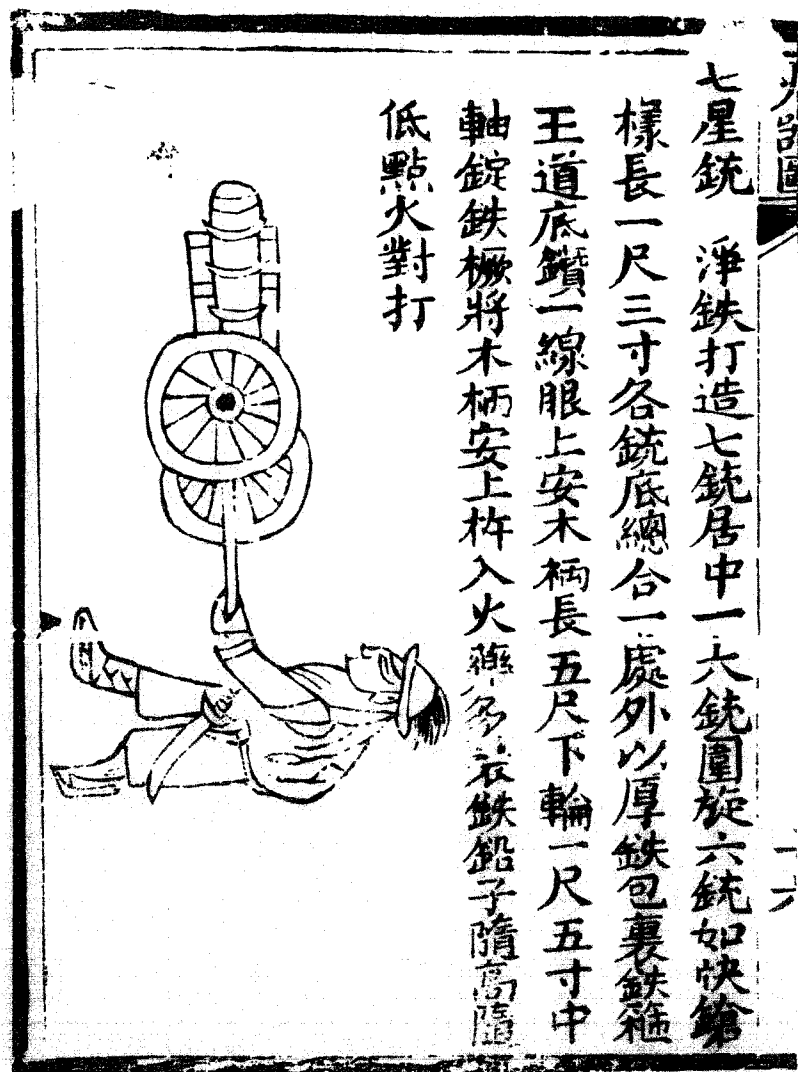 兵器圖
七星銃　淨鉄打造七銃居中一六銃圍旋六銃如快鎗
樣長一尺三寸各銃底總合一處外以厚鉄包裹鉄箍
王道底鑽一線眼上安木柄長五尺下輪一尺五寸中
軸錠鉄橛將木柄安上杵入火藥多裝鉄鉛子隨高隨
低點火對打
十六